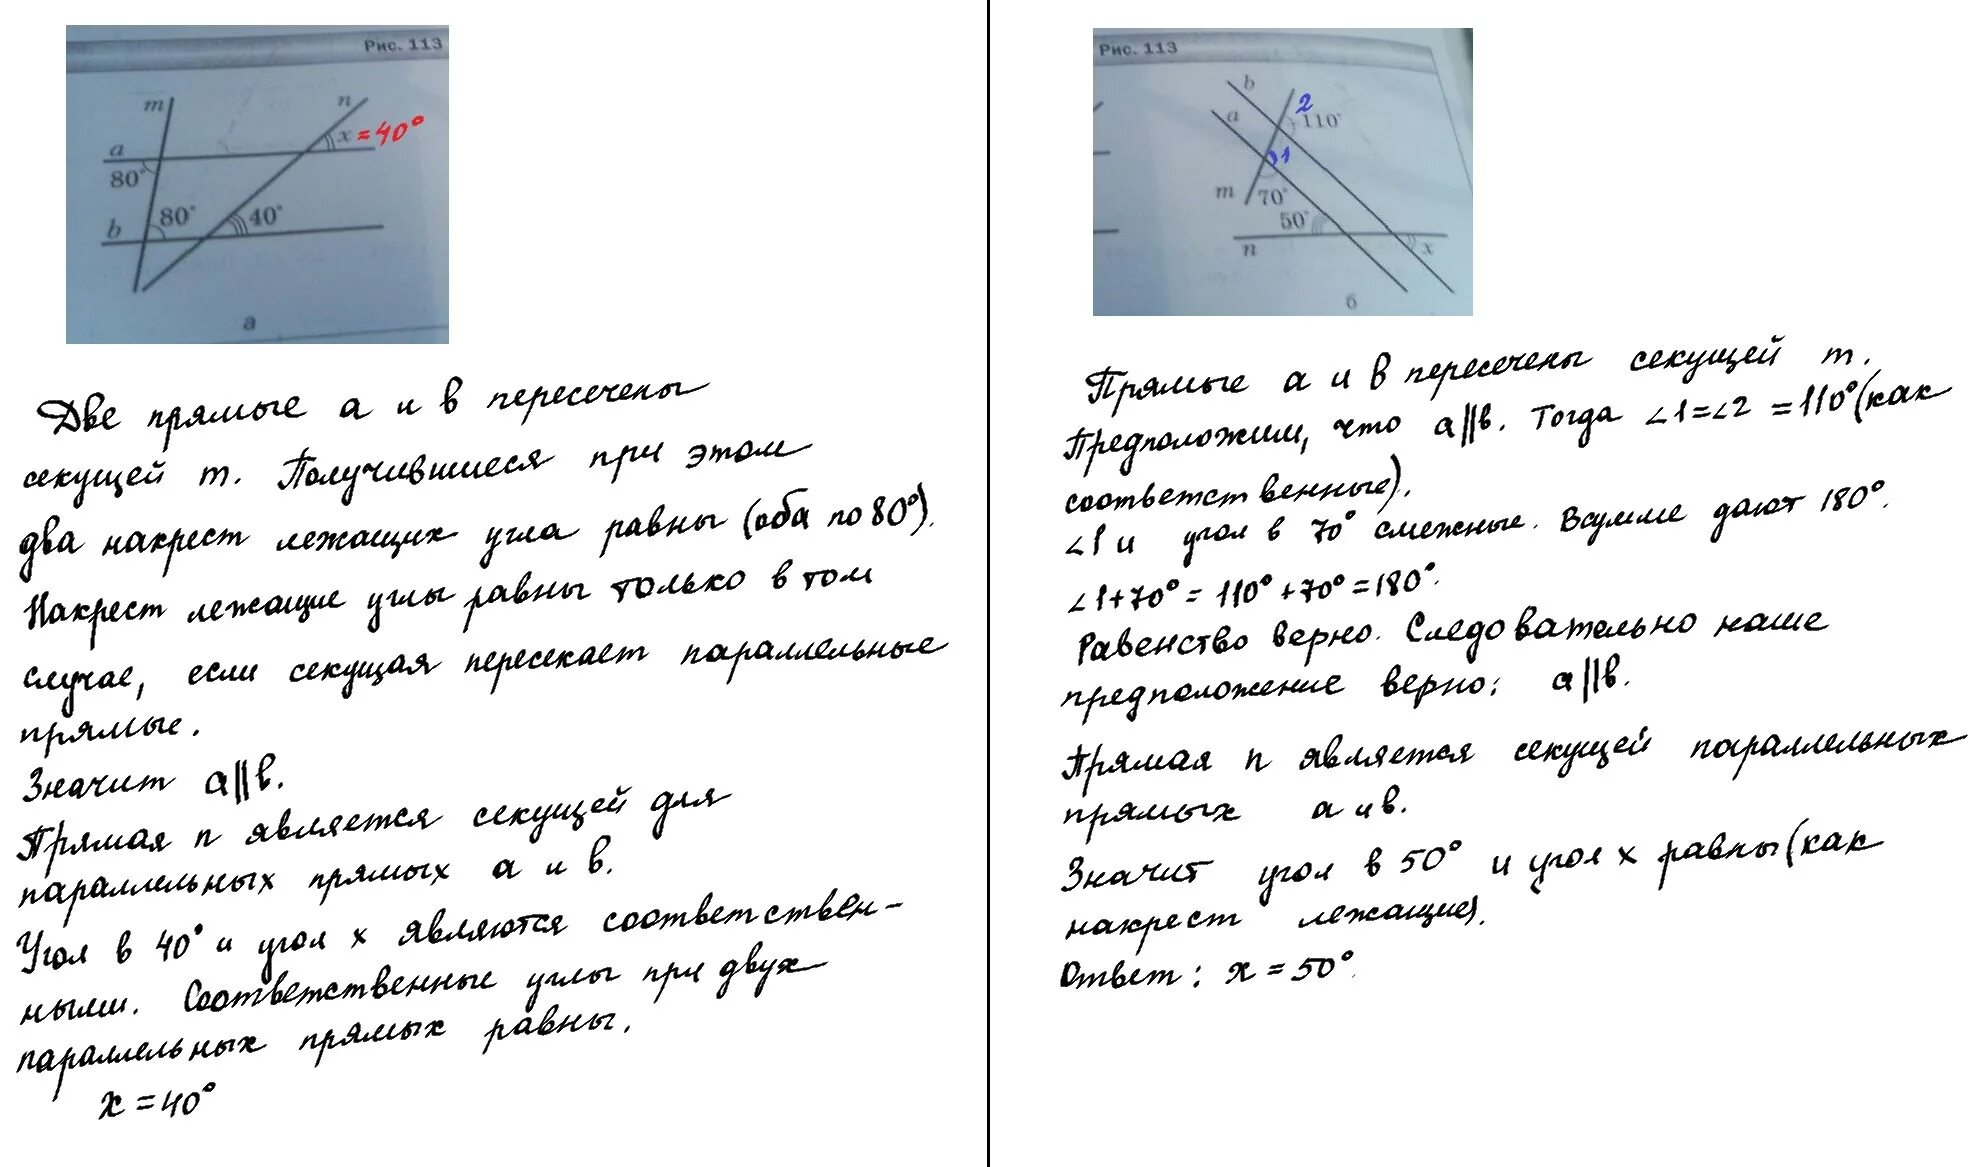 Рис. 113
m
n
x = 40°
a
80°
80°
40°
b
а
Две прямые a и b пересечены
секущей m. Получившиеся при этом
два накрест лежащих угла равны (оба по 80°).
Накрест лежащие углы равны только в том
случае, если секущая пересекает параллельные
прямые.
Значит a||b.
Прямая n является секущей для
параллельных прямых a и b.
Угол в 40° и угол x являются соответствен-
ными. Соответственные углы при двух
параллельных прямых равны.
x = 40°
Рис. 113
b
2
a
110°
1
m
70°
50°
n
x
б
Прямые a и b пересечены секущей m.
Предположим, что a||b. Тогда ∠1=∠2 =110° (как
соответственные).
∠1 и угол в 70° смежные. В сумме дают 180°.
∠1+70° = 110° +70° =180°.
Равенство верно. Следовательно наше
предположение верно: a||b.
Прямая n является секущей параллельных
прямых a и b.
Значит угол в 50° и угол x равны (как
накрест лежащие).
Ответ: x = 50°.